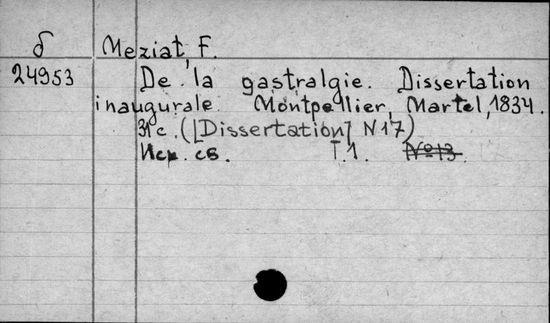 б Meziat, F.
24953 De la gastralgie. Dissertation
inaugurale. Montpellier, Martel, 1834.
31 c. ([Dissertation] N 17)
Иср. св. Т.1. №13.